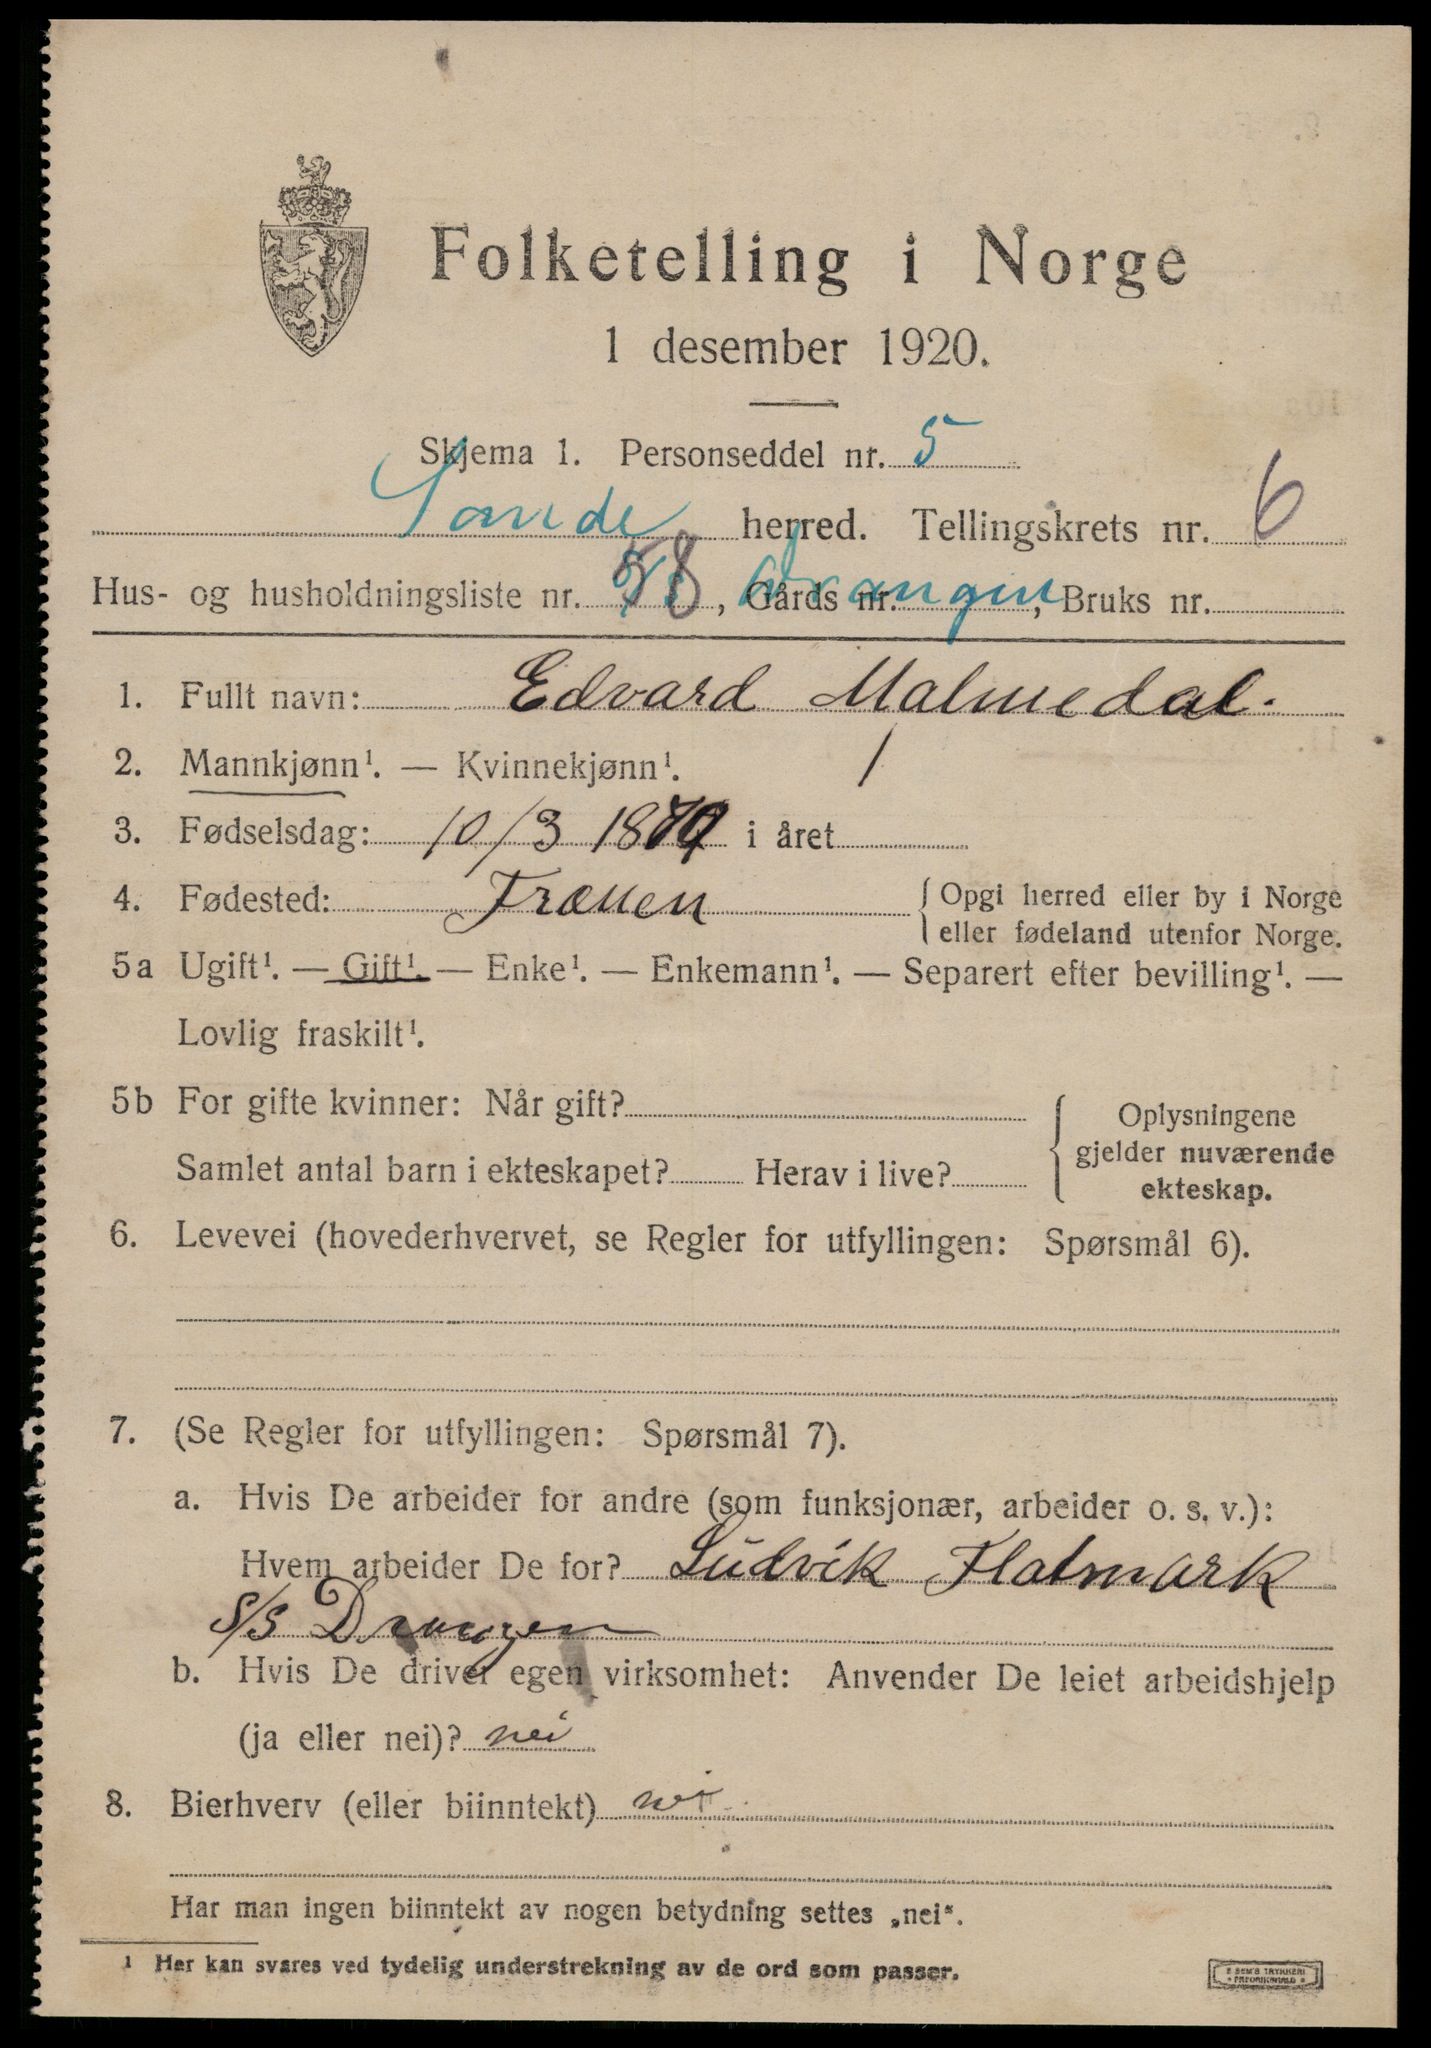 Folketelling i Norge
1 desember 1920.
Skjema 1. Personseddel nr. 5
Sande herred. Tellingskrets nr. 6
Hus- og husholdningsliste nr. 58, Gårds nr. Drangen, Bruks nr.
1. Fullt navn: Edvard Malmedal.
2. Mannkjønn¹. — Kvinnekjønn¹. /
3. Fødselsdag: 10/3 1879 i året
4. Fødested: Frænen { Opgi herred eller by i Norge
eller fødeland utenfor Norge.
5a Ugift¹. — Gift¹. — Enke¹. — Enkemann¹. — Separert efter bevilling¹. —
Lovlig fraskilt¹.
5b For gifte kvinner: Når gift? { Oplysningene
gjelder nuværende
Samlet antal barn i ekteskapet? Herav i live?
ekteskap.
6. Levevei (hovederhvervet, se Regler for utfyllingen: Spørsmål 6).
7. (Se Regler for utfyllingen: Spørsmål 7).
a. Hvis De arbeider for andre (som funksjonær, arbeider o. s. v.):
Hvem arbeider De for? Ludvik Flatmark
s/s Drangen
b. Hvis De driver egen virksomhet: Anvender De leiet arbeidshjelp
(ja eller nei)? nei
8. Bierhverv (eller biinntekt) nei
Har man ingen biinntekt av nogen betydning settes „nei“.
¹ Her kan svares ved tydelig understrekning av de ord som passer.